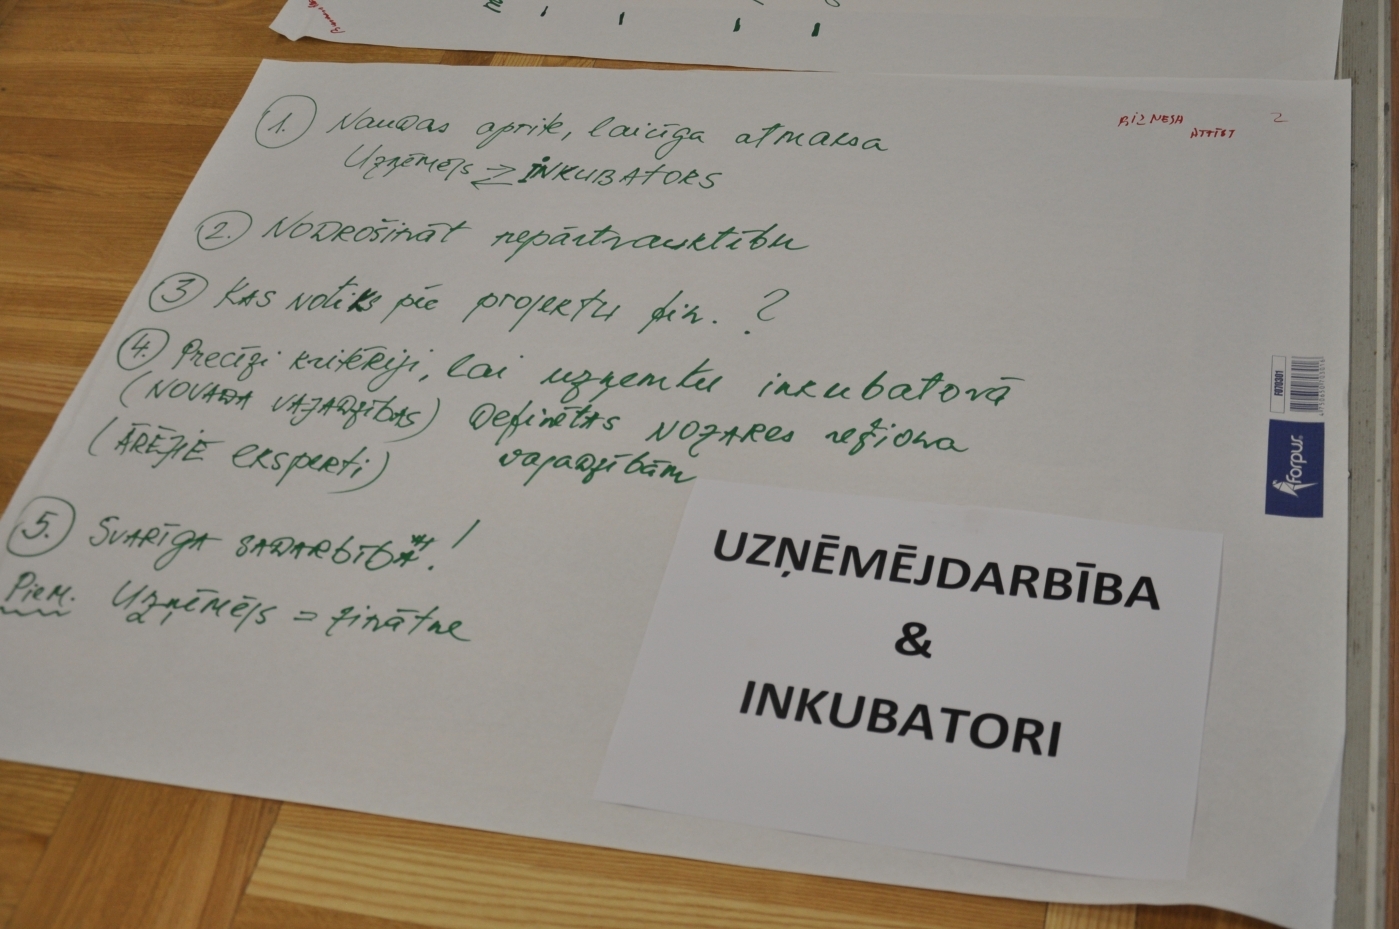 BIZNESA 2
ATTĪST
1. Naudas aprite, laicīga atmaksa
Uzņēmējs INKUBATORS
2. NODROŠINĀT nepārtrauktību
3 KAS NOTIKS pie projektu fin. ?
4. Precīzi kritēriji, lai uzņemtu inkubatorā
(NOVADA VAJADZĪBAS) Definētas NOZARES reģiona
(ĀRĒJIE eksperti) vajadzībām
5. SVARĪGA SADARBĪBA !
Piem. Uzņēmējs = zinātne
F070301
forpus
UZŅĒMĒJDARBĪBA
&
INKUBATORI